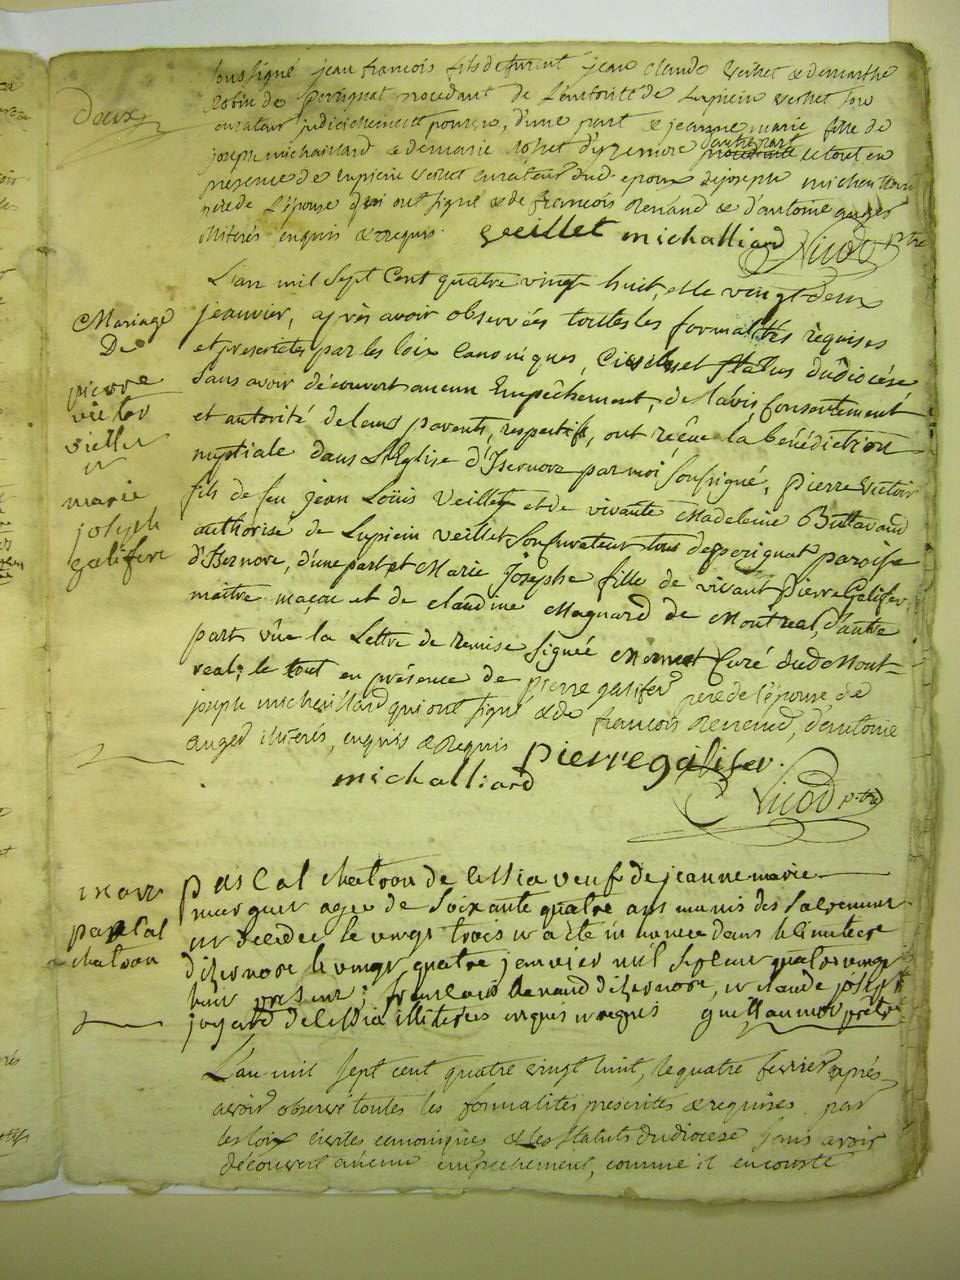 soussigné jean francois fils defunt jean claude veillet & demarthe
Robin de perrignat procedant de l'autorité de Lupicin veillet son
curateur judiciairement pourvu, d'une part & jeanne marie fille de
joseph michaillard & demarie d'yzernore d'autre part le tout en
presence de Lupicin veillet curateur dud. epoux de joseph michaillard
pere de l'épouse qui ont signé & de francois Renand & d'antoine auger
illiterés enquis & requis. veillet michalliard Nicod ptre
L'an mil Sept Cent quatre vingt huit, et le vingt deux
jeanvier, après avoir observées touttes les formalités requises
et prescrites par les loix Canoniques, Civiles et Statuts dudiocése
Sans avoir découvert aucun Empêchement, de l'avis, Consentement
et autorité de leurs parents, respectifs, ont reçue la bénédiction
nuptiale dans l'Eglise d'Isernore par moi Soussigné, pierre victoir
fils de feu jean Loüis veillet et de vivante Madeleine Buttavand
authorisé de Lupicin veillet Son Curateur tous de perignat paroisse
d'Isernore, d'une part et Marie Josephe fille de vivant Pierre Galifer
maître maçon et de claudine Magnard de Montréal, d'autre
part vûe la Lettre de remise Signée Mermet Curé dud. Mont-
real; le tout en présence de pierre galifer pere de l'épouse de
joseph michaillard qui ont signé & de francois Renand, d'antoine
auged illiterés, enquis & Requis pierre galifer.
michalliard Nicod ptre
Mariage
De
pierre
victor
veillet
et
marie
joseph
galifere
pascal chatron de lissia veuf de jeanne marie
agee de Soixante quatre ans munis des Sacremens
est decedee le vingt trois et a ete inhumee dans le cimetiere
d'izernore le vingt quatre janvier mil sept cent quatre vingt
huit presens; francois Renand d'izernore, et claude joseph
de lissia illiterées enquis et requis guillaumot prêtre
pascal
chatron
L'an mil Sept cent quatre vingt huit, le quatre fevrier après
avoir observé toutes les formalités prescrites & requises par
les loix civiles canoniques & les statuts du diocese Sans avoir
découvert aucun empechement, comme il en conste